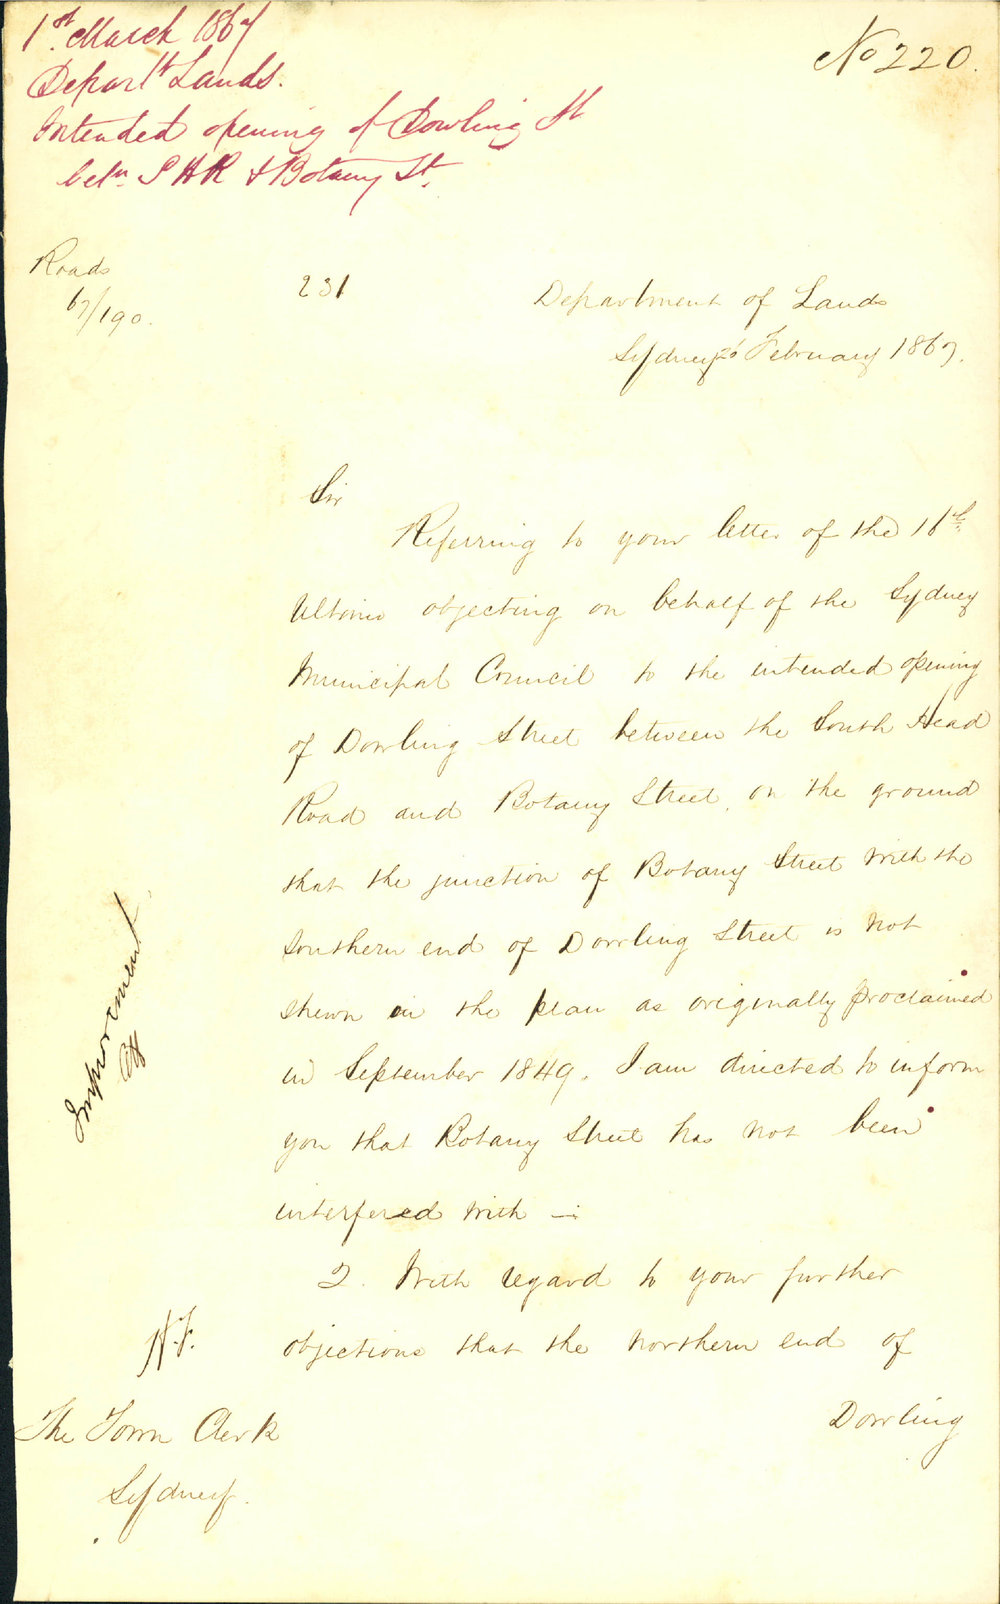 1st March 1867
Departt Lands.
Intended opening of Dowling St
betn S H R & Botany St.
No 220.
Roads
67/190.
231
Department of Lands
Sydney February 1867.
Sir
Referring to your letter of the 16th
Ultimo objecting on behalf of the Sydney
Municipal Council to the intended opening
of Dowling Street between the South Head
Road and Botany Street, on the ground
that the junction of Botany Street with the
Southern end of Dowling Street is not
shewn in the plan as originally proclaimed
in September 1849. I am directed to inform
you that Botany Street has not been
interfered with —
2. With regard to your further
objections that the Northern end of
Dowling
Improvement
N.F.
The Town Clerk
Sydney.